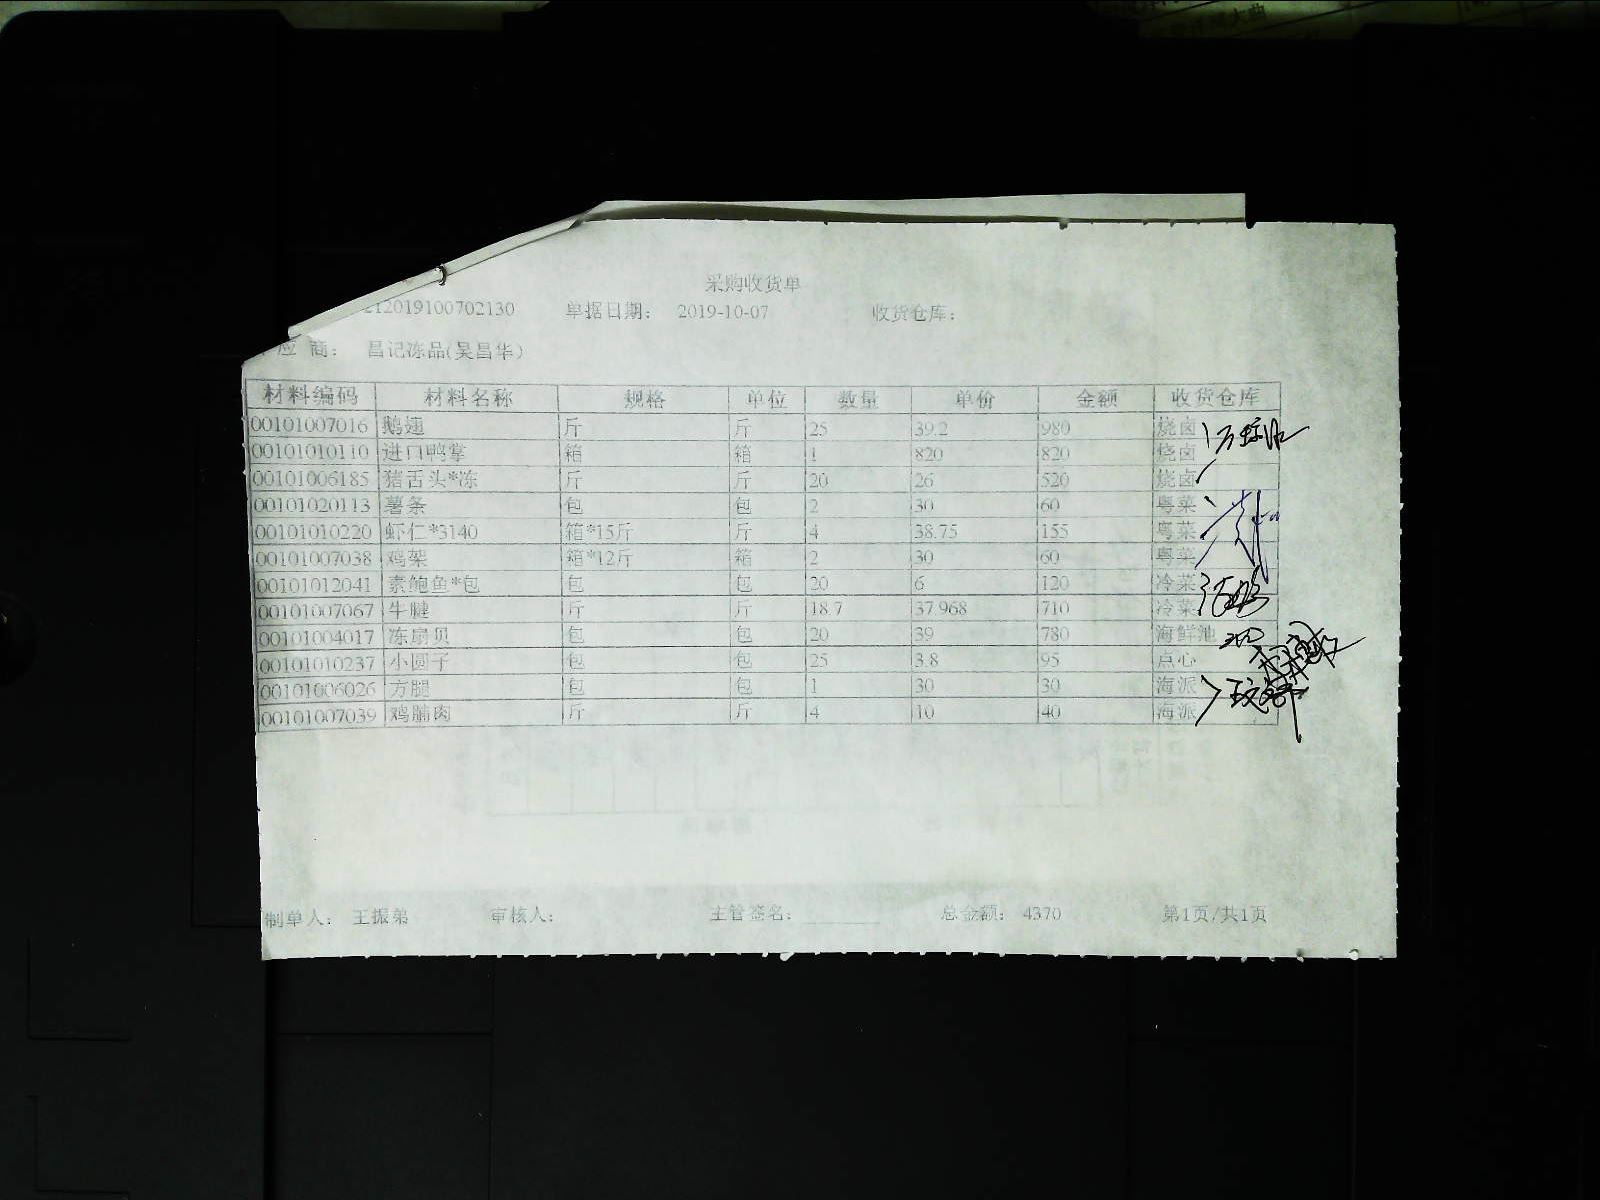 采购收货单
212019100702130 单据日期： 2019-10-07 收货仓库：
应 商： 昌记冻品(吴昌华)
材料编码 材料名称 规格 单位 数量 单价 金额 收货仓库
00101007016 鹅翅 斤 斤 25 39.2 980 烧卤
00101010110 进口鸭掌 箱 箱 1 820 820 烧卤
00101006185 猪舌头*冻 斤 斤 20 26 520 烧卤
00101020113 薯条 包 包 2 30 60 粤菜
00101010220 虾仁*3140 箱*15斤 斤 4 38.75 155 粤菜
00101007038 鸡架 箱*12斤 箱 2 30 60 粤菜
00101012041 素鲍鱼*包 包 包 20 6 120 冷菜
00101007067 牛腱 斤 斤 18.7 37.968 710 冷菜
00101004017 冻扇贝 包 包 20 39 780 海鲜池
00101010237 小圆子 包 包 25 3.8 95 点心
00101006026 方腿 包 包 1 30 30 海派
00101007039 鸡脯肉 斤 斤 4 10 40 海派
制单人： 王振弟 审核人： 主管签名： 总金额： 4370 第1页/共1页